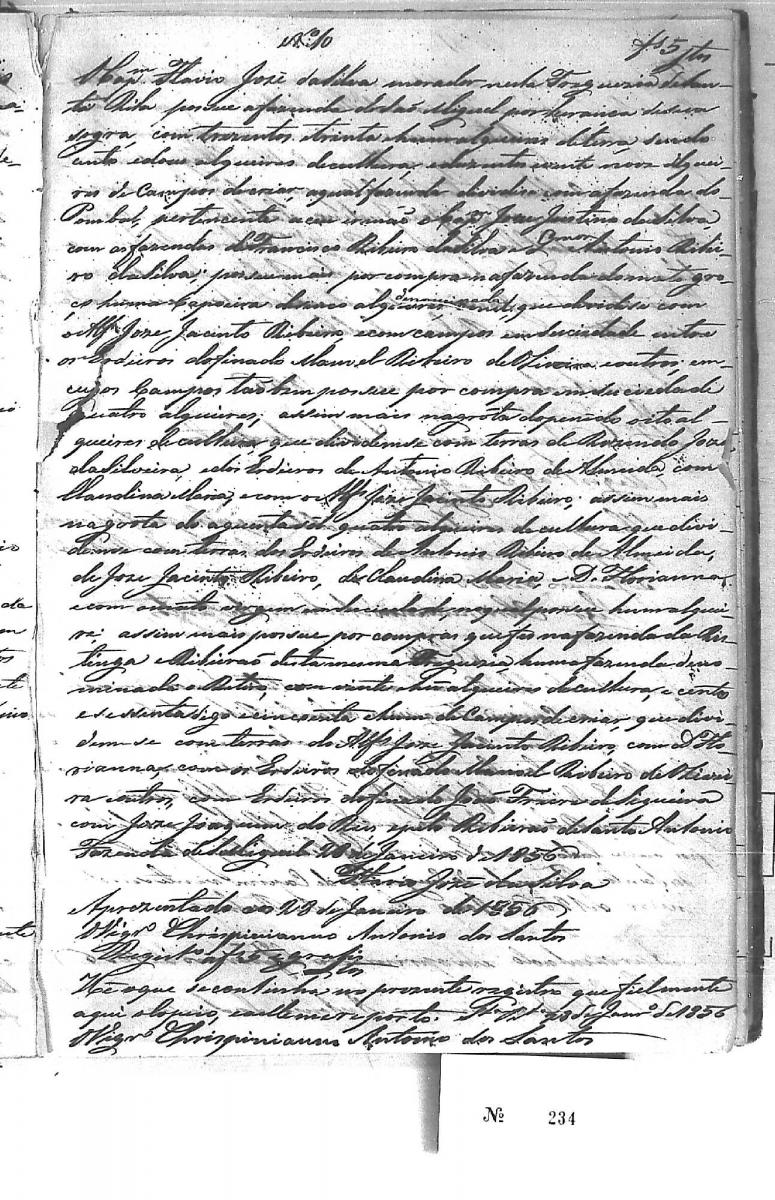 Nº10
fs 5
Cap.m Flavio José da Silva morador nesta Freguezia de San-
ta Rita possue a fazenda de São Miguel por herança de sua
sogra, com trezentos etrinta ehum alqueires de terra, sendo
cento edois alqueires de cultura, eduzentos evinte nove alquei-
res de Campos de criar, aqual fazenda devide com a fazenda do
Pombal, pertincente a seu irmão o Cap.m Joze Justino da Silva,
com as fazendas de Francisco Ribeiro da Silva e Antonio Ribei-
ro da Silva; possue mais por compra na fazenda do mato gro-
ço huma Capoeira de cinco alqueires denominada que devide-se com
o Alf.s Joze Jacinto Ribeiro, e com campos em Sociedade entre
os Erdeiros do finado Manoel Ribeiro de Oliveira e outros, em
cujos Campos tão bem possue por compra em Suciedade
quatro alqueires; assim mais na grota do penedo oito al-
queires de cultura, que dividem-se com terras de Rozendo José
da Silveira, e dos Erdeiros de Antonio Ribeiro de Almeida, com
Claudina Maria, e com o Alf.s Joze Jacinto Ribeiro; assim mais
na grota do aquenta Sol quatro alqueires de cultura que divi-
dem-se com terras dos Erdeiros de Antonio Ribeiro de Almeida,
de Joze Jacinto Ribeiro, de Claudina Maria, e D. Florianna,
e com o mato virgem em Suciedade, no qual possue hum alquei-
re; assim mais possue por compras que fes na fazenda da Res-
tinga e Ribeirão desta mesma Freguezia, huma fazenda deno-
minada o Retiro, com vinte e hũ alqueires de cultura, e cento
e sessenta digo e cincoenta e hum de Campos de criar, que divi-
dem-se com terras do Alf.s Joze Jacinto Ribeiro, com D. Flo-
rianna, com os Erdeiros do finado Manoel Ribeiro de Oliveira
e outros, com Erdeiros do finado João Freire de Siqueira
com Joze Joaquim dos Reis e pelo Ribeirão de Santo Antonio
Fazenda de S. Miguel 20 de Janeiro de 1856
Flavio José da Silva
Aprezentado aos 28 de Janeiro de 1856
O Vigr.o Chrispinianno Antonio dos Santos
Registro
He o que se continha no prezente registro que fielmente
aqui o Copiei, e a elle me reporto. Sta. Rta. 28 de Janr.o de 1856
O Vigr.o Chrispinianno Antonio dos Santos
Nº 234